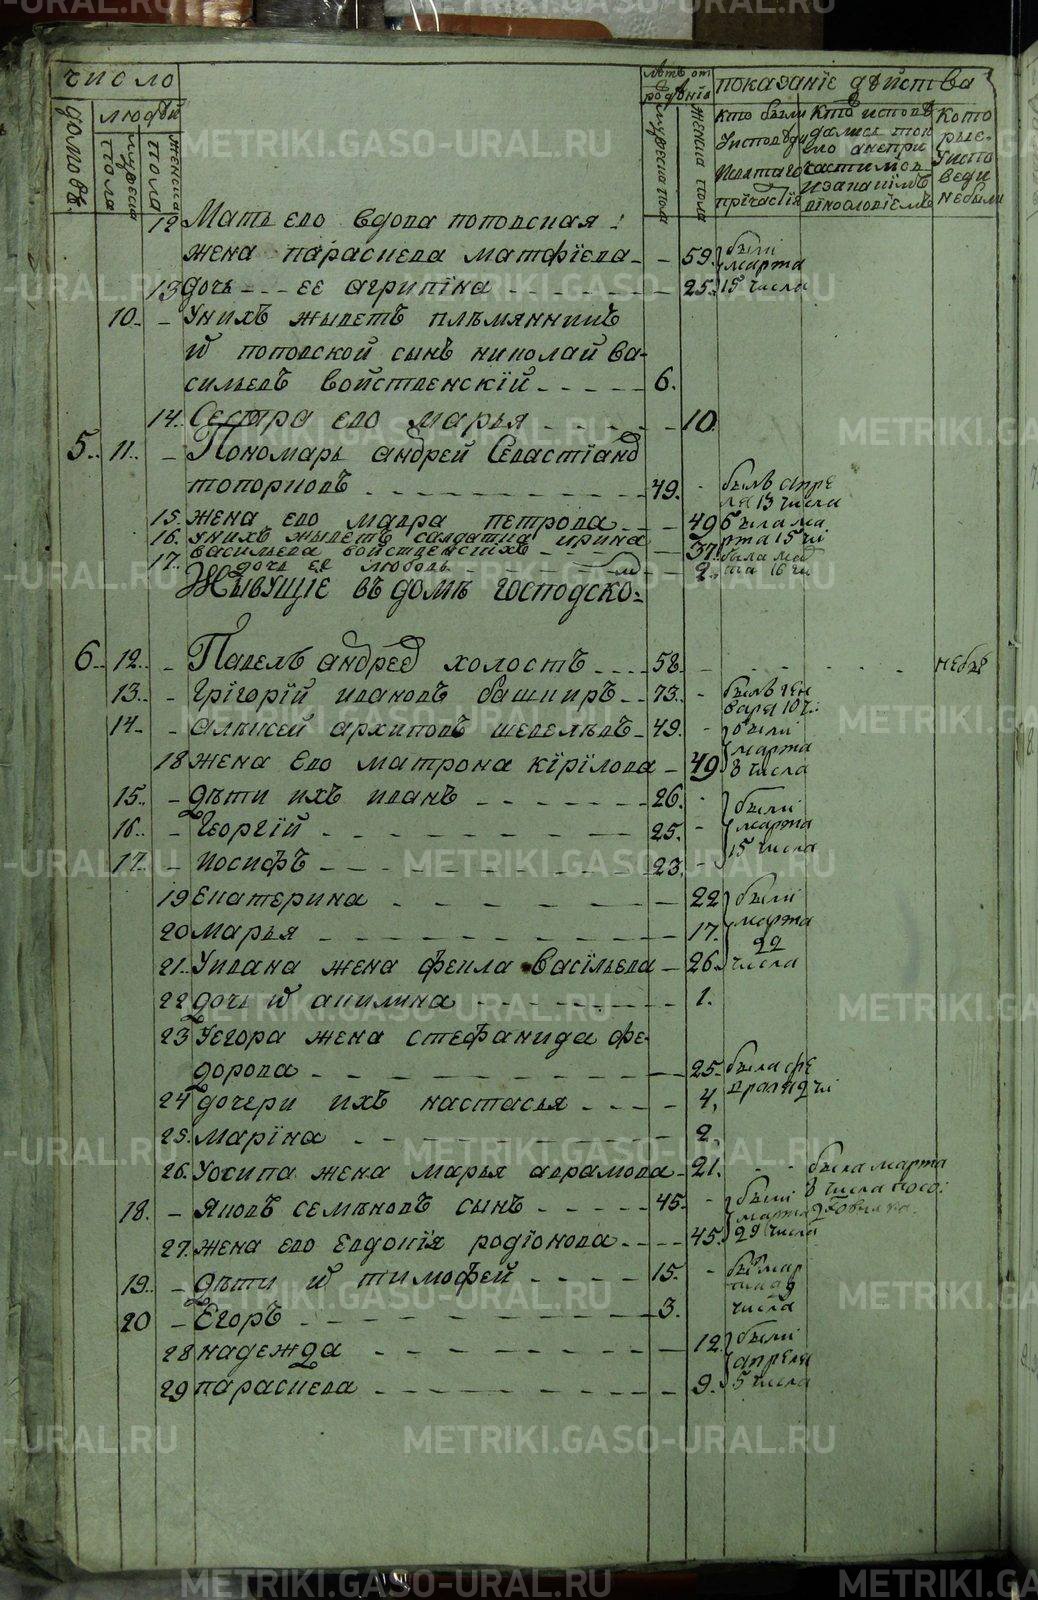 число
лѣтъ от
рожденія
показаніе действа
домовъ.
людей
мужеска
пола
женска
пола
мужеска пола
женска пола
кто были
уисповеди
исвятаго
причастія
кто исповѣ
дались ток
мо анепри
частился
изакакимъ
винословіемъ
Кото
рые
уиспо
веди
небыли
12 Мать ево вдова поповская
жена параскева матфіева - - 59. были
марта
13 дочь - - ее агрипіна - - - 25. 15 числа
10. - Унихъ жыветъ плѣмянникъ
и поповской сынъ николай ва-
сильевъ войственскій - - - 6.
14. Сестра ево марья - - - 10
5. 11. - Пономарь андрей Севастіанов
топорковъ - - - 49. - былъ апре
ля 13 числа
15. жена ево мавра петрова - - 49 была ма
рта 15 чи
16. унихъ жыветъ салдатка ирина
васильева войственскіхъ - - - 37. была мар
та 16 чи
17. дочь ее любовь - - - 2.
Жывущіе въ домѣ господско:
6. 12. - Павелъ андреев холостъ - - - 58. - - - - небы
13. - Григорій ивановъ башкиръ - - 73. - былъ ген
варя 10 чи:
14. - алѣксей архиповъ шевелевъ - 49. - были
марта
8 числа
18 жена ево матрона кірілова - 49
15. - дѣти ихъ иванъ - - - 26. - были
марта
15 числа
16. - Георгій - - - 25. -
17. - иосифъ - - - 23. -
19 екатерина - - - 22 были
марта
22
числа
20 марья - - - 17.
21. Уивана жена фекла васільева - 26.
22 дочь и акилина - - - 1.
23 Уегора жена стефанида фе-
дорова - - - 25. была фе
враля 2 чі
24 дочери ихъ настасья - - - 4,
25. маріна - - - 2.
26. Уосипа жена марья аврамова - 21. - - была марта
8 числа
18. - яковъ семѣновъ сынъ - - - 45. - были
марта
29 числа
27. жена ево евдокія родіонова - - - 45.
19. - дѣти и тимофей - - - 15. - бы мар
числа
20 - Егоръ - - - 3.
28 надежда - - - 12 были
апреля
5 числа
29 параскева - - - 9.
METRIKI.GASO-URAL.RU